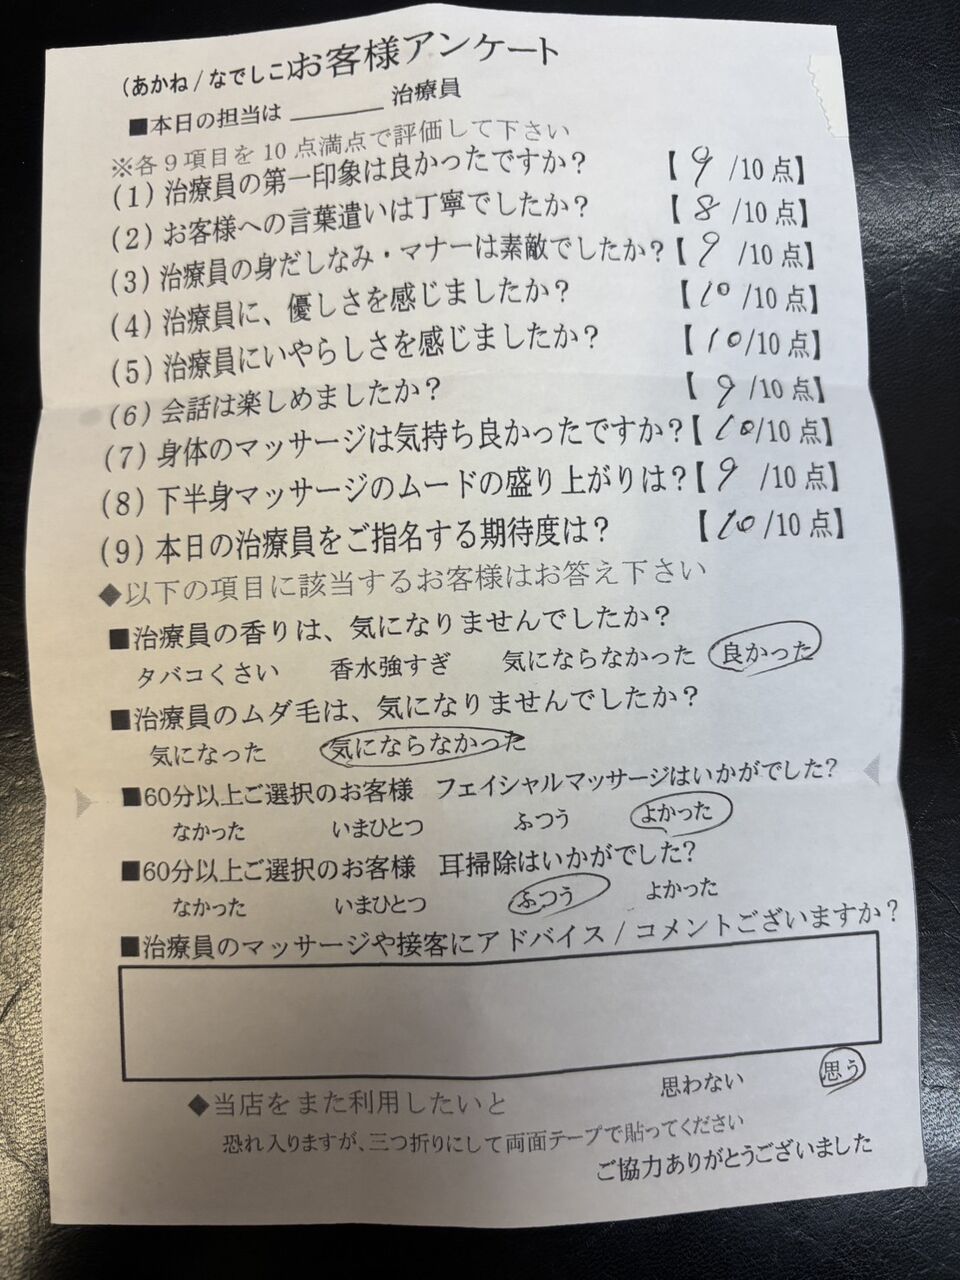 (あかね/なでしこ)お客様アンケート
■本日の担当は ______ 治療員
※各9項目を10点満点で評価して下さい
(1)治療員の第一印象は良かったですか? 【 9 /10点】
(2)お客様への言葉遣いは丁寧でしたか? 【 8 /10点】
(3)治療員の身だしなみ・マナーは素敵でしたか?【 9 /10点】
(4)治療員に、優しさを感じましたか? 【 10 /10点】
(5)治療員にいやらしさを感じましたか? 【 10/10点】
(6)会話は楽しめましたか? 【 9 /10点】
(7)身体のマッサージは気持ち良かったですか?【 10/10点】
(8)下半身マッサージのムードの盛り上がりは?【 9 /10点】
(9)本日の治療員をご指名する期待度は? 【 10/10点】
◆以下の項目に該当するお客様はお答え下さい
■治療員の香りは、気になりませんでしたか?
タバコくさい 香水強すぎ 気にならなかった 良かった
■治療員のムダ毛は、気になりませんでしたか?
気になった 気にならなかった
■60分以上ご選択のお客様 フェイシャルマッサージはいかがでした?
なかった いまひとつ ふつう よかった
■60分以上ご選択のお客様 耳掃除はいかがでした?
なかった いまひとつ ふつう よかった
■治療員のマッサージや接客にアドバイス/コメントございますか?
◆当店をまた利用したいと 思わない 思う
恐れ入りますが、三つ折りにして両面テープで貼ってください
ご協力ありがとうございました